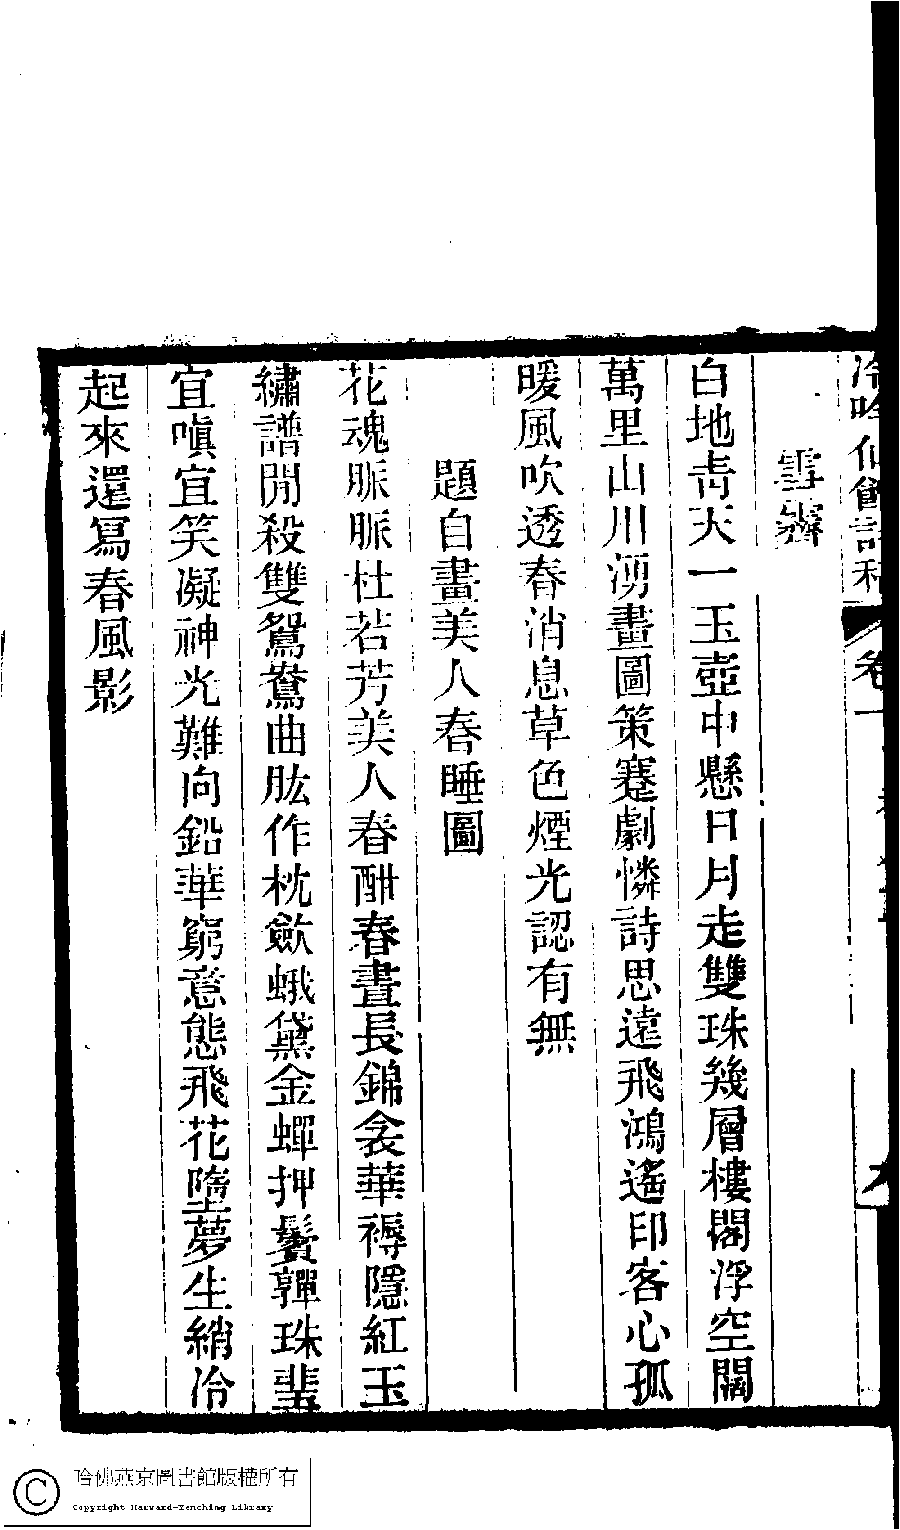 冷吟仙館詩稿 卷一 九
雪霽
白地青天一玉壺中懸日月走雙珠幾層樓閣浮空闊
萬里山川湧畫圖策蹇劇憐詩思遠飛鴻遙印客心孤
暖風吹透春消息草色煙光認有無
題自畫美人春睡圖
花魂脈脈杜若芳美人春酣春晝長錦衾華褥隱紅玉
繡譜閒殺雙鴛鴦曲肱作枕斂蛾黛金蟬押鬢嚲珠琲
宜嗔宜笑凝神光難向鉛華窮意態飛花墮夢生綃冷
起來還寫春風影
哈佛燕京圖書館版權所有
Copyright Harvard-Yenching Library